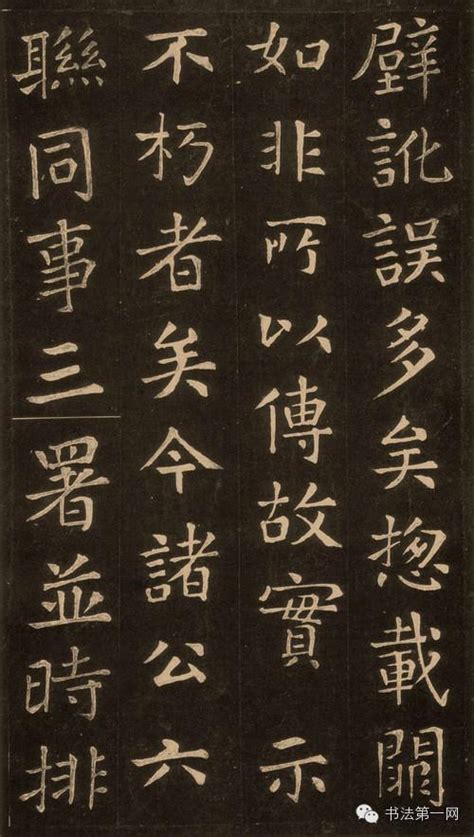 壁訛誤多矣揔載闕
如非所以傳故實示
不朽者矣今諸公六
聯同事三署並時排
书法第一网